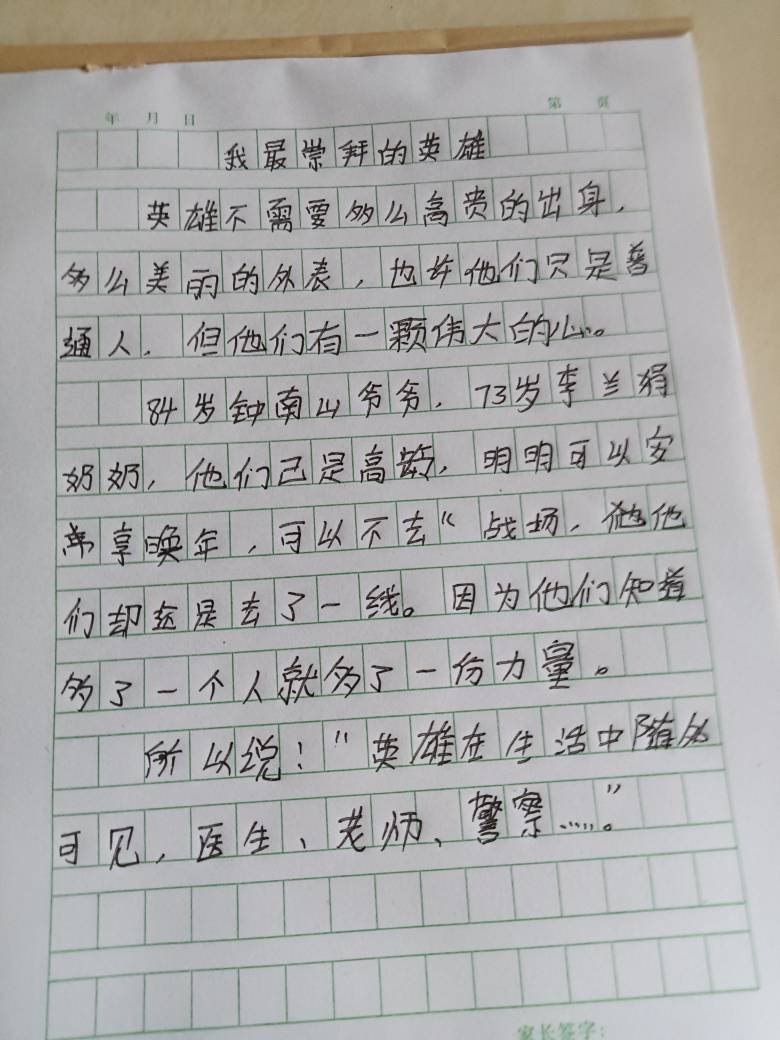 年 月 日 第 页
我最崇拜的英雄
英雄不需要多么高贵的出身，
多么美丽的外表，也许他们只是普
通人，但他们有一颗伟大的心。
84岁钟南山爷爷，73岁李兰娟
奶奶，他们已是高龄，明明可以安
享晚年，可以不去“战场，他
们却还是去了一线。因为他们知道
多了一个人就多了一份力量。
所以说！“英雄在生活中随处
可见，医生、老师、警察……。”
家长签字：